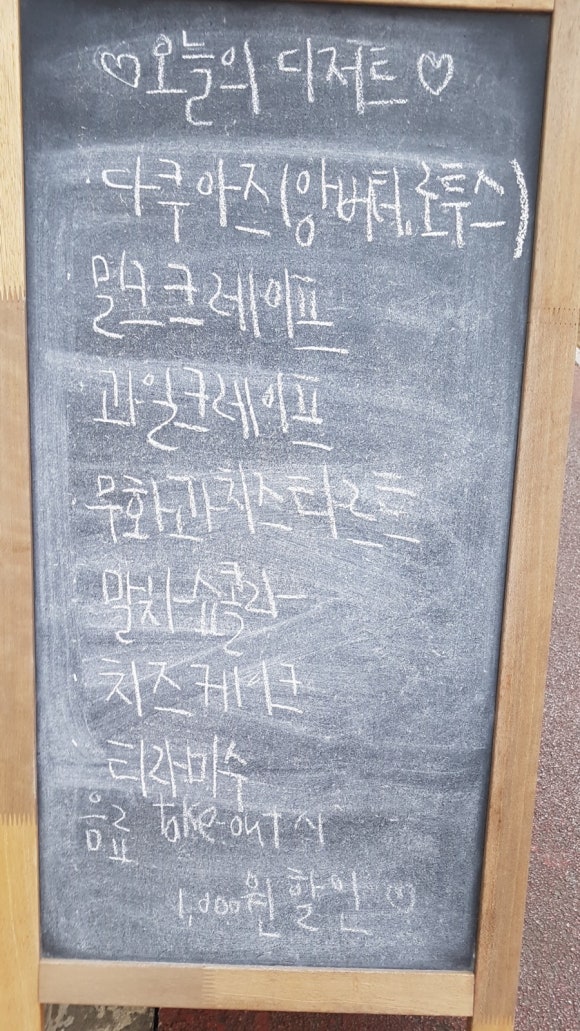 ♡오늘의 디저트♡
· 다쿠아즈(앙버터, 로투스)
· 밀크크레이프
· 과일크레이프
· 무화과치즈타르트
· 말차쇼콜라
· 치즈케이크
· 티라미수
음료 take-out 시
1,000원 할인 ♡